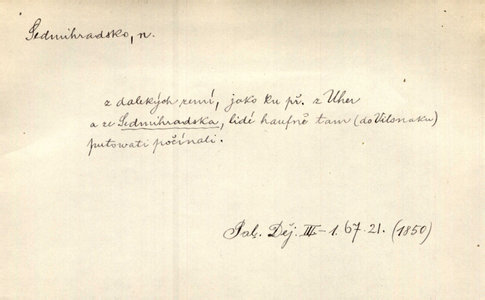 Sedmihradsko, n.
z dalekých zemí, jako ku př. z Uher
a ze Sedmihradska, lidé haufně tam (do Vilsnaku)
putowati počínali.
Pal. Děj. III-1. 67. 21. (1850)